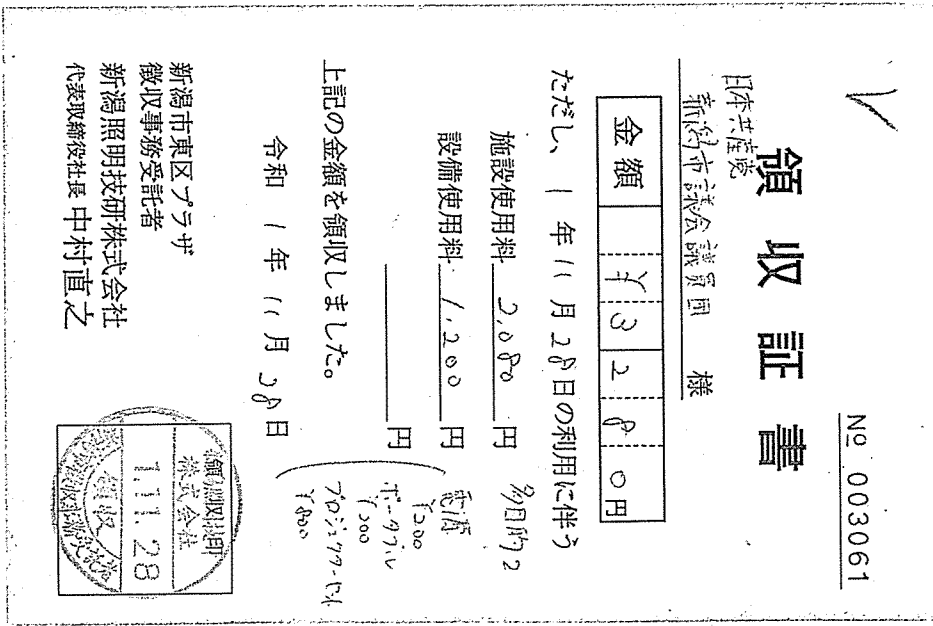 領収証書
№ 003061
日本共産党
新潟市議会議員団 様
金額 ¥3280円
ただし、1年11月28日の利用に伴う
施設使用料 2,080円 多目的2
設備使用料 1,200円
円
電源
¥200
ポータブル
¥200
プロジェクターセット
¥800
上記の金額を領収しました。
令和 1年 11月 28日
新潟市東区プラザ
徴収事務受託者
新潟照明技研株式会社
代表取締役社長 中村直之
株式会社
1.11.28
領収